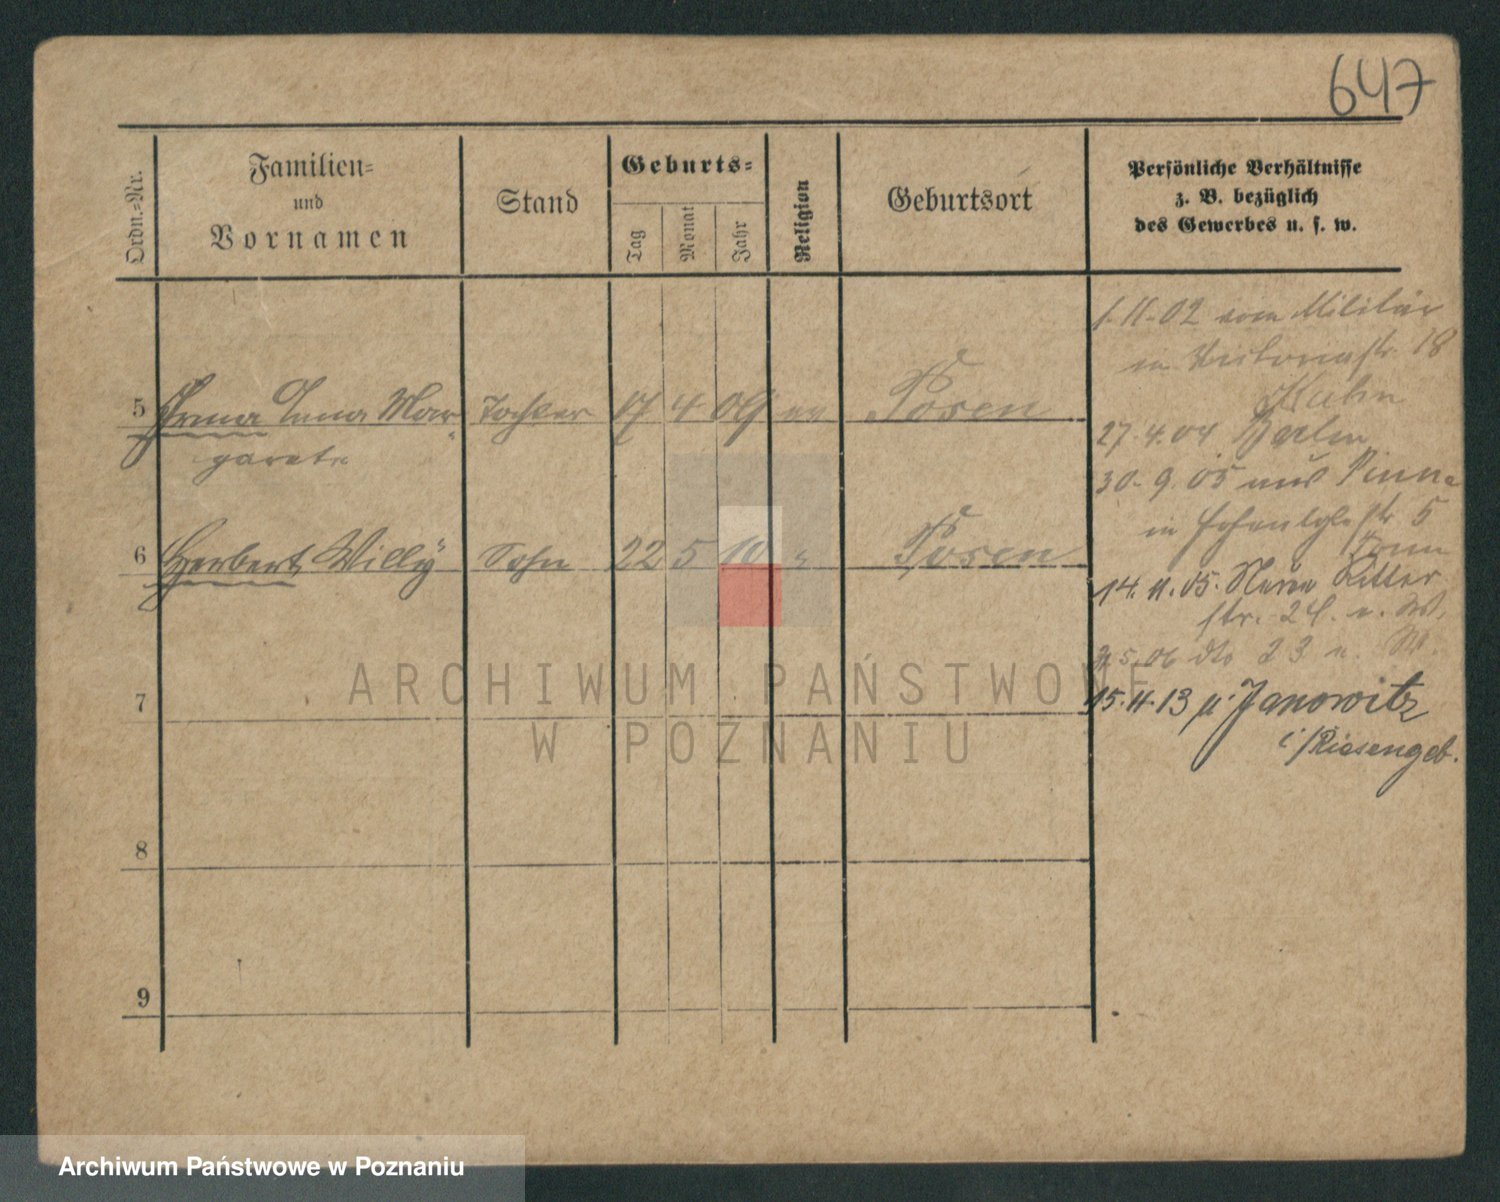 647
Ordn.-Nr.
Familien-
und
Vornamen
Stand
Geburts-
Tag
Monat
Jahr
Religion
Geburtsort
Persönliche Verhältnisse
z. B. bezüglich
des Gewerbes u. s. w.
1.11.02 vom Militär
in Victoriastr. 18
Hahn
5 Irma Anna Mar- Tochter 17 4 09 ev Posen
garete
27.4.04 Berlin
30.9.05 aus Pinne
in str 5
6 Herbert Willy Sohn 22 5 10 " Posen
14.11.05. Neue Ritter
str. 24. b. W.
5.06 dto 23 b. W.
7
15.11.13 n. Janowitz
i/Riesengeb.
8
9
ARCHIWUM PAŃSTWOWE
W POZNANIU
Archiwum Państwowe w Poznaniu